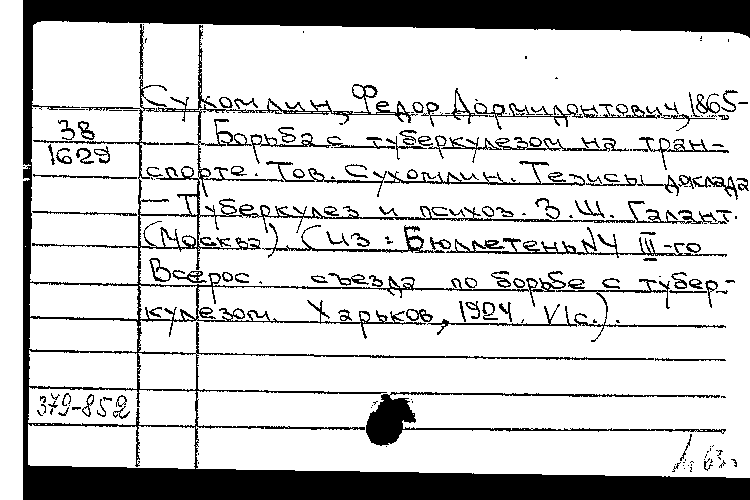 Сухомлин, Федор Дормидонтович, 1865-
38
1629
Борьба с туберкулезом на тран-
спорте. Тов. Сухомлин. Тезисы доклада
— Туберкулез и психоз. З.Ш. Галант.
(Москва). (Из: Бюллетень №4 III-го
Всерос. съезда по борьбе с тубер-
кулезом. Харьков, 1924. VI с.).
379-852